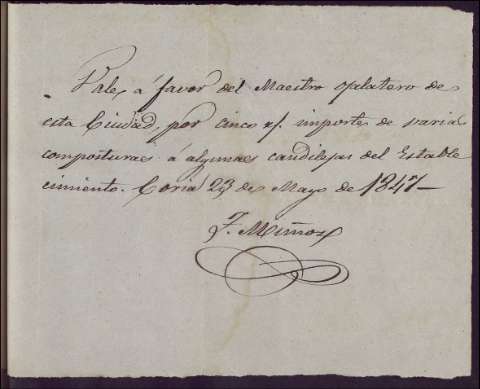 Vale á favor del Maestro oplatero de
esta Ciudad, por cinco rs. importe de varia
composturas á algunas candilejas del Estable
cimiento. Coria 23 de Mayo de 1847-
F. Muñoz